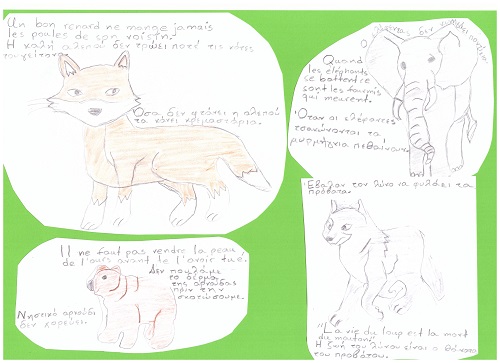 Un bon renard ne mange jamais
les poules de son voisin.
Η καλή αλεπού δεν τρώει ποτέ τις κότες
του γείτονα.
Όσα δεν φτάνει η αλεπού
τα κάνει κρεμαστάρια.
Ο ελέφαντας δεν
Quand
les éléphants
se battent ce
sont les fourmis
qui meurent.
Όταν οι ελέφαντες
τσακώνονται τα
μυρμήγκια πεθαίνουν.
Il ne faut pas vendre la peau
de l'ours avant de l'avoir tué.
Δεν πουλάμε
το δέρμα
της αρκούδας
πριν την
σκοτώσουμε.
Νηστικό αρκούδι
δεν χορεύει.
Έβαλαν τον λύκο να φυλάει τα
πρόβατα.
"La vie du loup est la mort
du mouton"
Η ζωή του λύκου είναι ο θάνατος
του προβάτου.